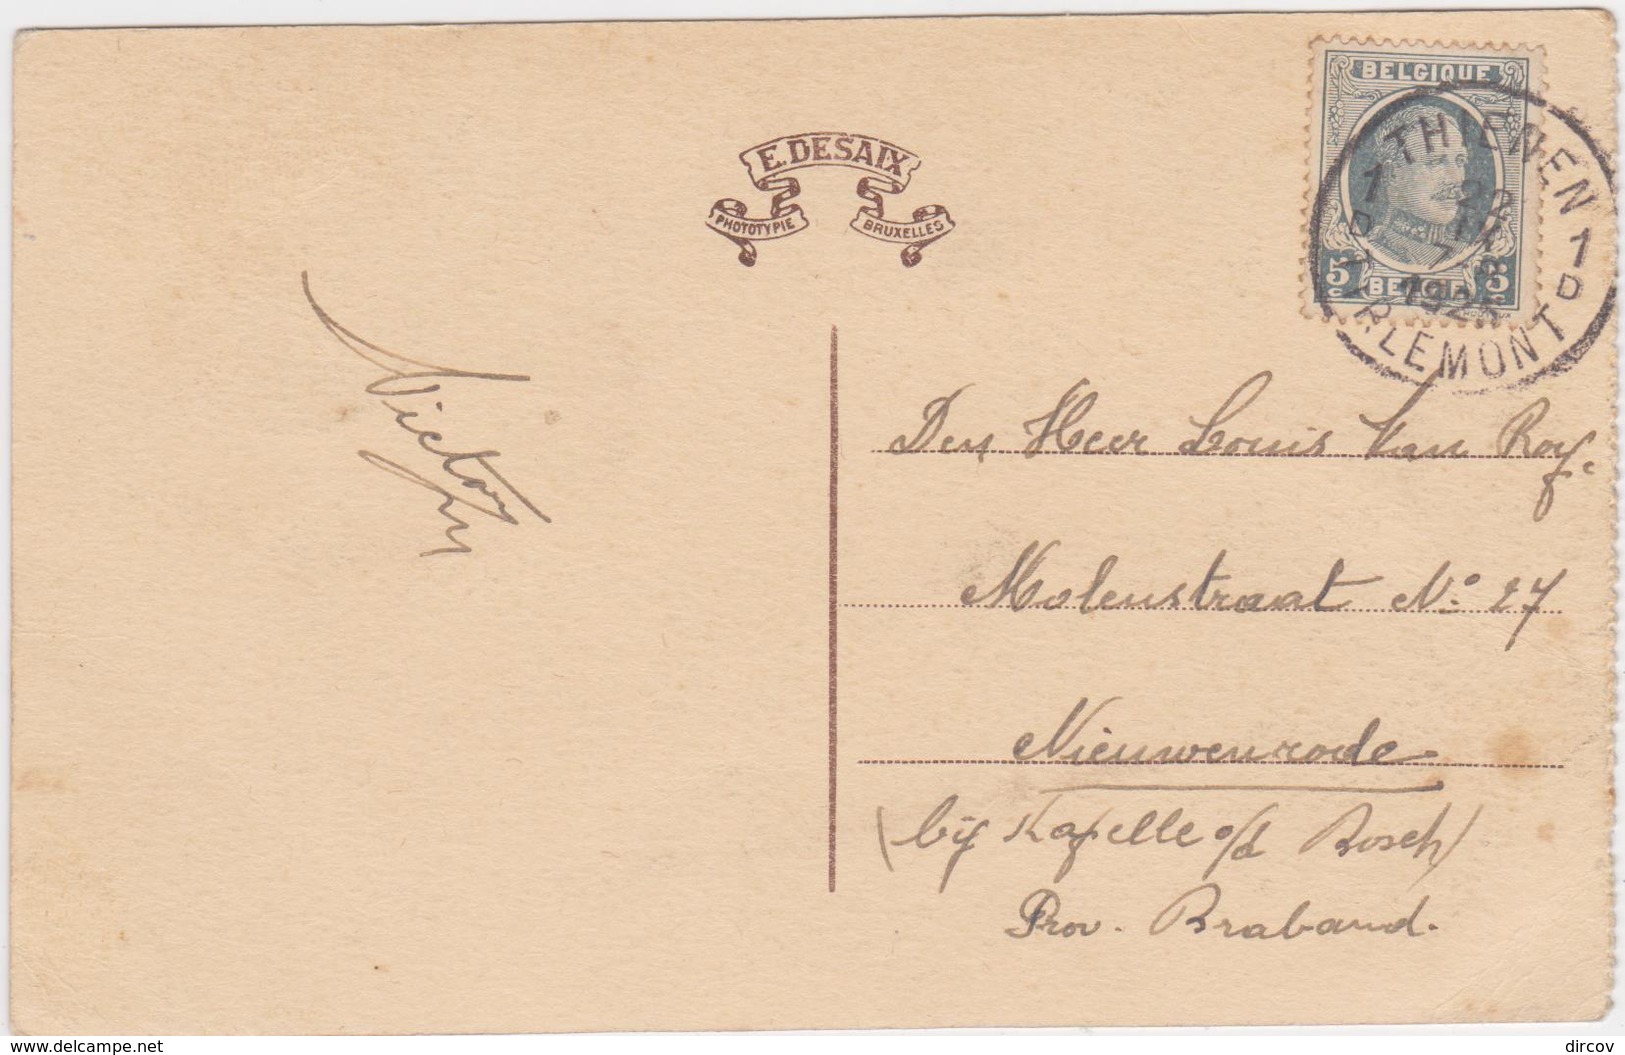 E. DESAIX
PHOTOTYPIE
BRUXELLES
BELGIQUE
5 c
BELGIE
5 c
THIENEN
1 1
D D
TIRLEMONT
Victor
Den Heer Louis Van Roy.
Molenstraat No. 27
Nieuwenrode
(bij Kapelle o/d Bosch)
Prov. Braband.
www.delcampe.net
dircov